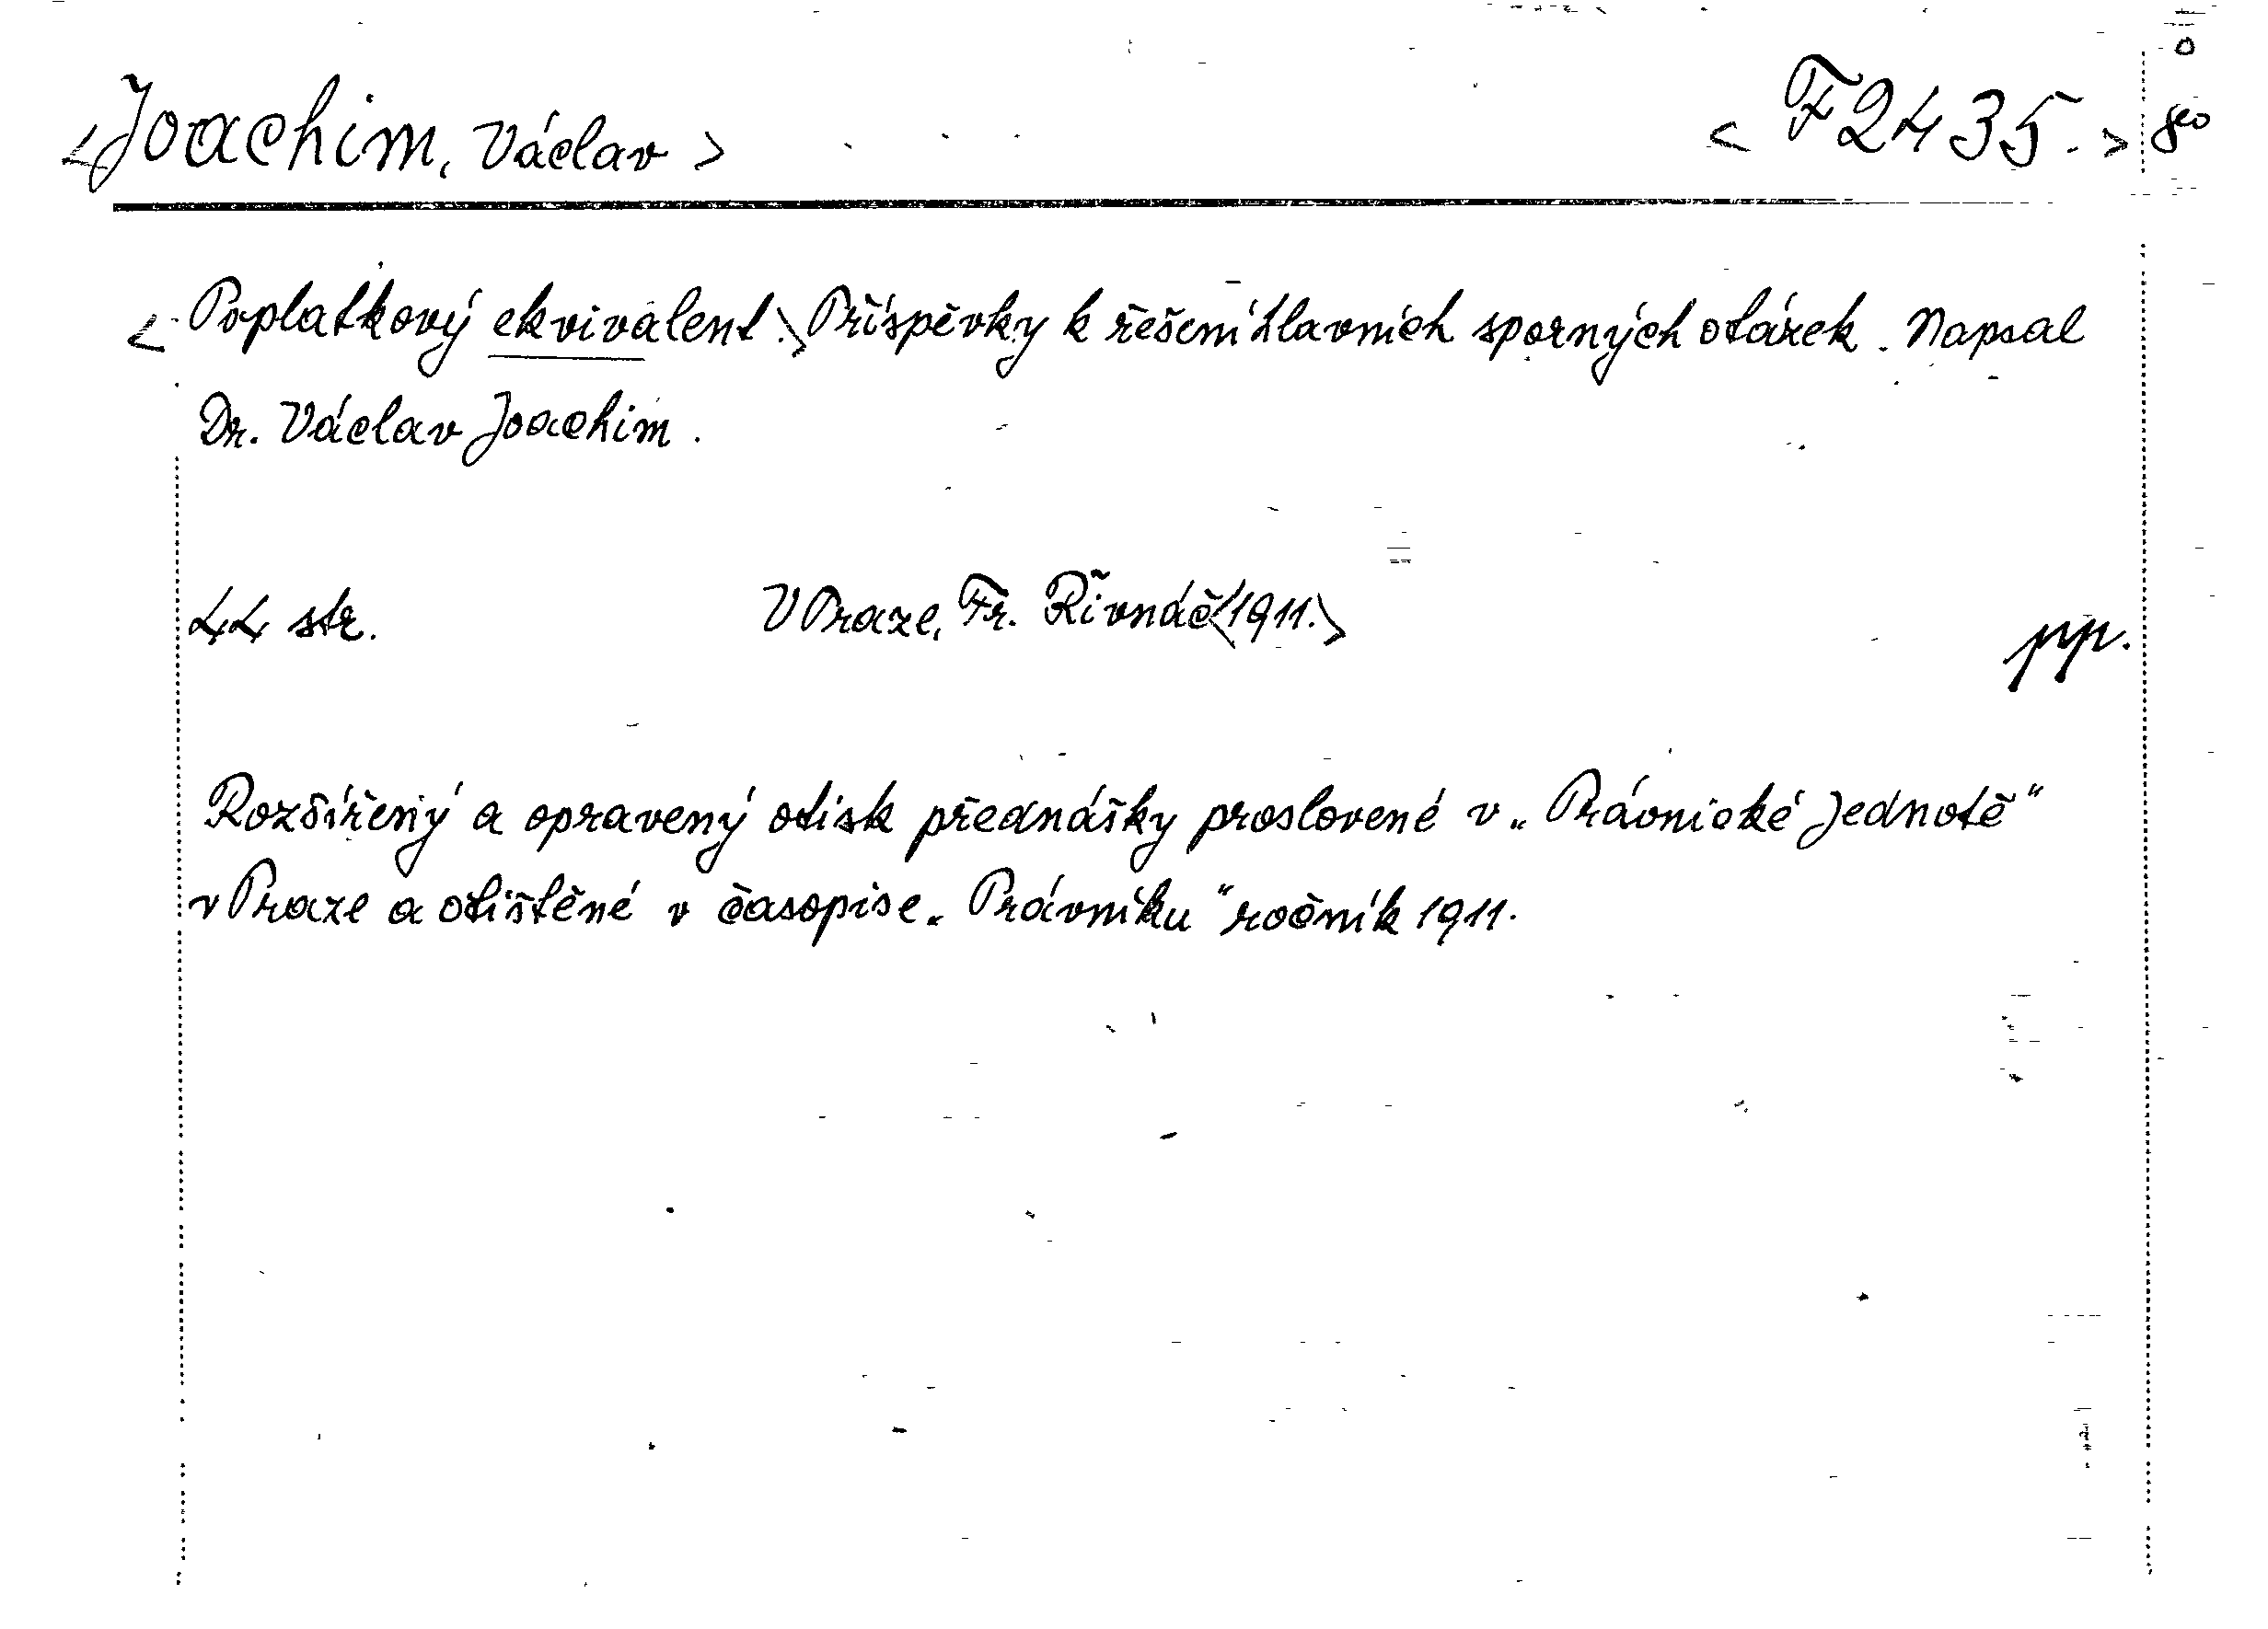 <Joachim, Václav> <F 2435.> 8°
<Poplatkový ekvivalent.> Příspěvky k řešení hlavních sporných otázek. Napsal
Dr. Václav Joachim.
44 str. V Praze, Fr. Řivnáč <1911.>
pp.
Rozšířený a opravený otisk přednášky proslovené v „Právnické Jednotě“
v Praze a otištěné v časopise „Právníku“ ročník 1911.